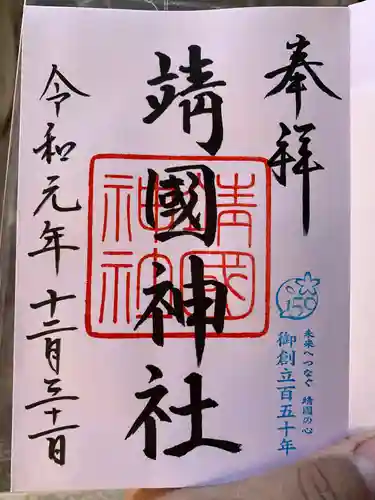 奉拝
150
未来へつなぐ 靖國の心
御創立百五十年
靖國神社
靖國神社
令和元年 十二月三十一日